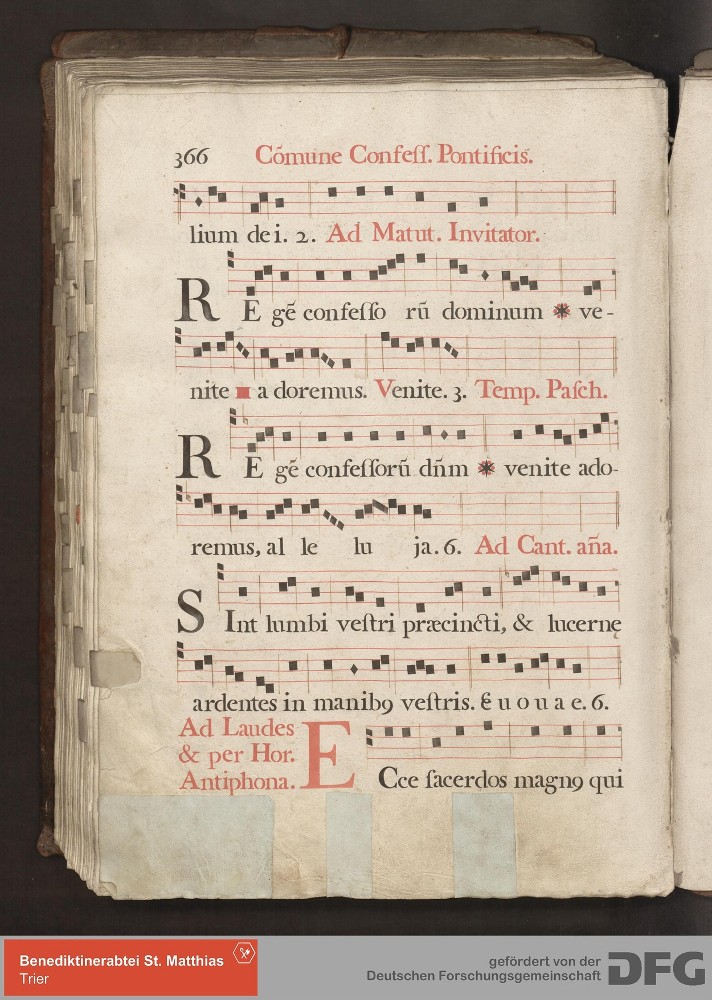 366 Cõmune Confeſſ. Pontificis.
lium dei. 2. Ad Matut. Invitator.
RE gẽ confeſſo rũ dominum ve-
nite a doremus. Venite. 3. Temp. Paſch.
RE gẽ confeſſorũ dñm venite ado-
remus, al le lu ja. 6. Ad Cant. aña.
SInt lumbi veſtri præcincti, & lucernę
ardentes in manibꝯ veſtris. E u o u a e. 6.
Ad Laudes
& per Hor.
Antiphona.
ECce ſacerdos magnꝯ qui
Benediktinerabtei St. Matthias
Trier
gefördert von der
Deutschen Forschungsgemeinschaft
DFG